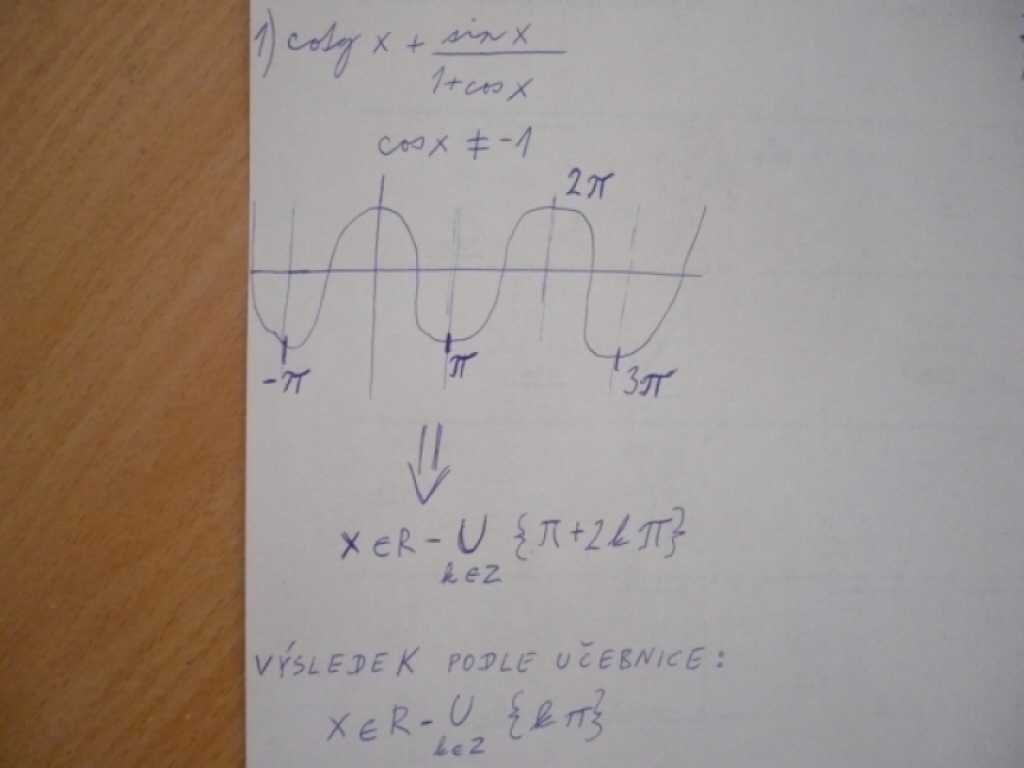 1) cotg x + sin x
1+cos x
cos x ≠ -1
2π
-π π 3π
x ∈ R - ∪ {π+2kπ}
k∈Z
VÝSLEDEK PODLE UČEBNICE:
x ∈ R - ∪ {kπ}
k∈Z